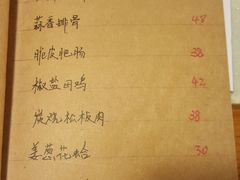 蒜香排骨 48
脆皮肥肠 38
椒盐田鸡 42
炭烧松板肉 38
姜葱花蛤 30